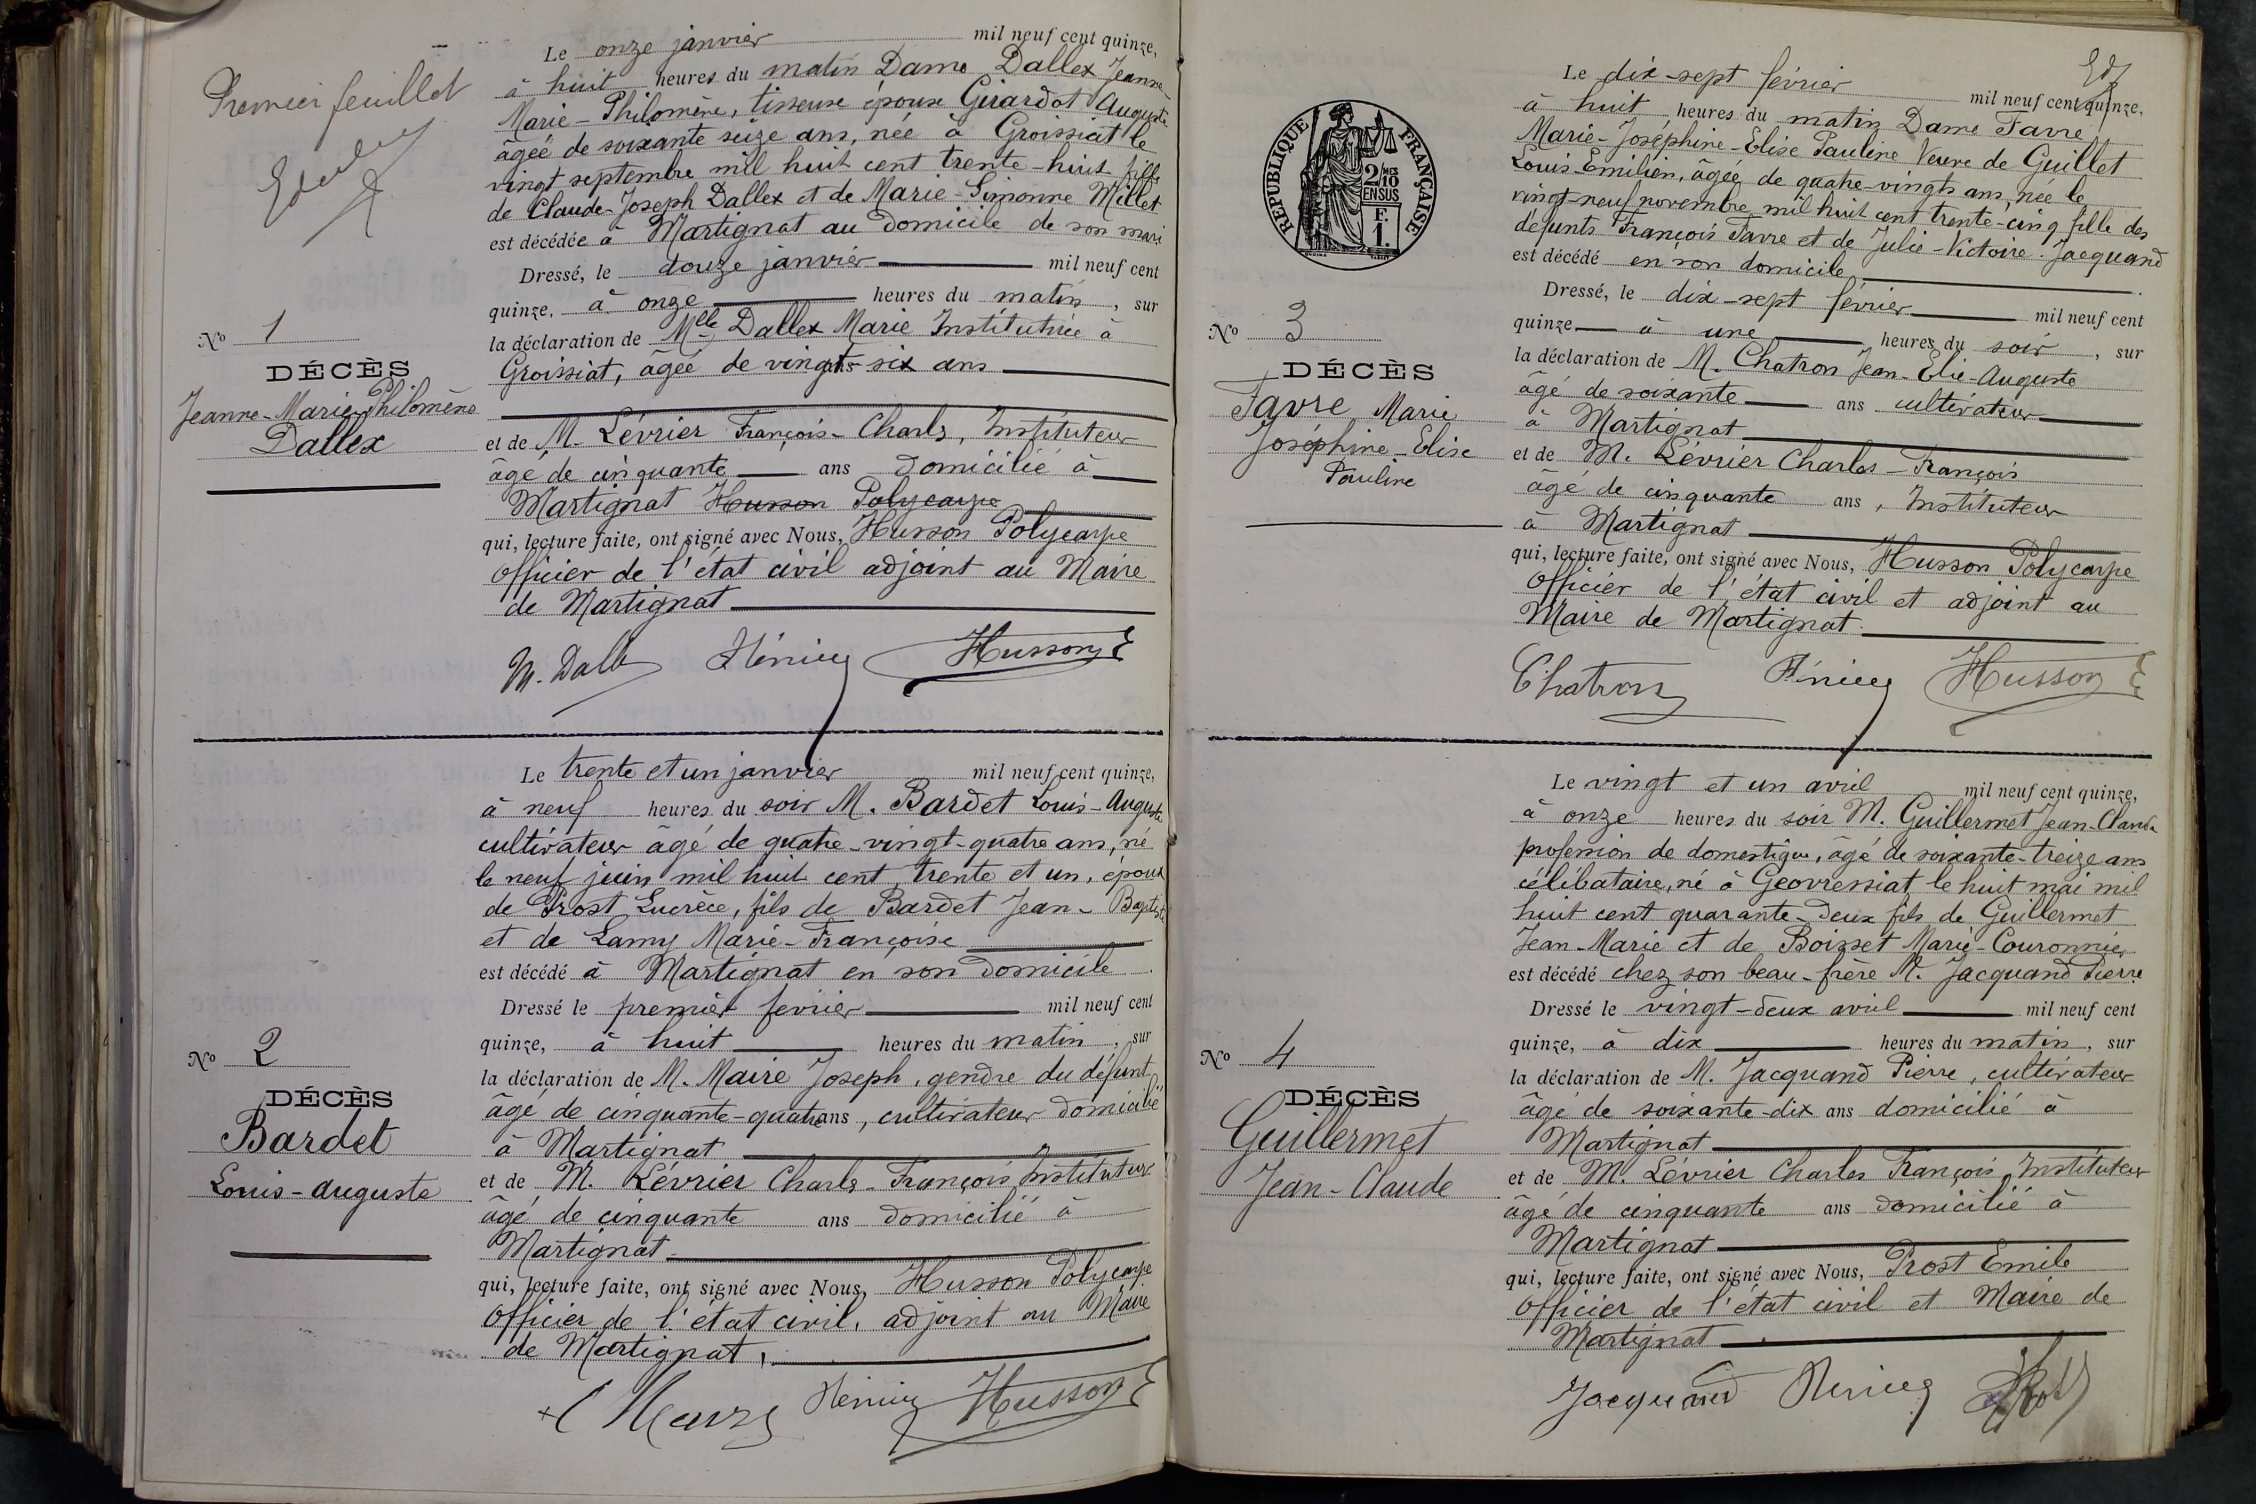 Premier feuillet
Le onze janvier mil neuf cent quinze,
à huit heures du matin Dame Dallex Jeanne-
Marie-Philomène, tisseuse épouse Girardot Auguste
âgée de soixante seize ans, née à Groissiat le
vingt septembre mil huit cent trente-huit fille
de Claude-Joseph Dallex et de Marie-Simonne Millet
est décédée à Martignat au domicile de son mari
Dressé, le douze janvier mil neuf cent
quinze, à onze heures du matin, sur
la déclaration de Melle Dallex Marie Institutrice à
Groissiat, âgée de vingt-six ans
et de M. Lévrier François-Charls, Instituteur
âgé de cinquante ans domicilié à
Martignat Husson Polycarpe
qui, lecture faite, ont signé avec Nous, Husson Polycarpe
Officier de l'état civil adjoint au Maire
de Martignat
No 1
DÉCÈS
Jeanne-Marie-Philomène
Dallex
M. Dall Husson
Le trente et un janvier mil neuf cent quinze,
à neuf heures du soir M. Bardet Louis-Auguste
cultivateur âgé de quatre-vingt-quatre ans, né
le neuf juin mil huit cent trente et un, époux
de Prost Lucrèce, fils de Bardet Jean-Baptiste
et de Lamy Marie-Françoise
est décédé à Martignat en son domicile.
Dressé le premier fevrier mil neuf cent
quinze, à huit heures du matin, sur
la déclaration de M. Maire Joseph, gendre du défunt
âgé de cinquante-quatre ans, cultivateur domicilié
à Martignat
et de M. Lévrier Charls-François Instituteur
âgé de cinquante ans domicilié à
Martignat
qui, lecture faite, ont signé avec Nous, Husson Polycarpe
Officier de l'état civil, adjoint au Maire
de Martignat,
No 2
DÉCÈS
Bardet
Louis-Auguste
Husson
RÉPUBLIQUE FRANÇAISE
2/10 MES
EN SUS
F.
1.
Le dix-sept février mil neuf cent quinze,
à huit heures du matin Dame Favre
Marie-Joséphine-Elise Pauline Veuve de Guillet
Louis-Emilien, âgée de quatre-vingts ans, née le
vingt-neuf novembre mil huit cent trente-cinq fille des
défunts François Favre et de Julie-Victoire Jacquand
est décédé en son domicile
Dressé, le dix-sept février mil neuf cent
quinze à une heures du soir, sur
la déclaration de M. Chatron Jean-Elie-Auguste
âgé de soixante ans cultivateur
à Martignat
et de M. Lévrier Charles-François
âgé de cinquante ans, Instituteur
à Martignat
qui, lecture faite, ont signé avec Nous, Husson Polycarpe
Officier de l'état civil et adjoint au
Maire de Martignat.
No 3
DÉCÈS
Favre Marie
Joséphine-Elise
Pauline
Chatron Husson
Le vingt et un avril mil neuf cent quinze,
à onze heures du soir M. Guillermet Jean-Claude
profession de domestique, âgé de soixante-treize ans
célibataire, né à Geovressiat le huit mai mil
huit cent quarante-deux fils de Guillermet
Jean-Marie et de Boisset Marie-Couronnie
est décédé chez son beau-frère M. Jacquand Pierre
Dressé le vingt-deux avril mil neuf cent
quinze, à dix heures du matin, sur
la déclaration de M. Jacquand Pierre, cultivateur
âgé de soixante-dix ans domicilié à
Martignat
et de M. Lévrier Charles François Instituteur
âgé de cinquante ans domicilié à
Martignat
qui, lecture faite, ont signé avec Nous, Prost Emile
Officier de l'état civil et Maire de
Martignat
No 4
DÉCÈS
Guillermet
Jean-Claude
Jacquand